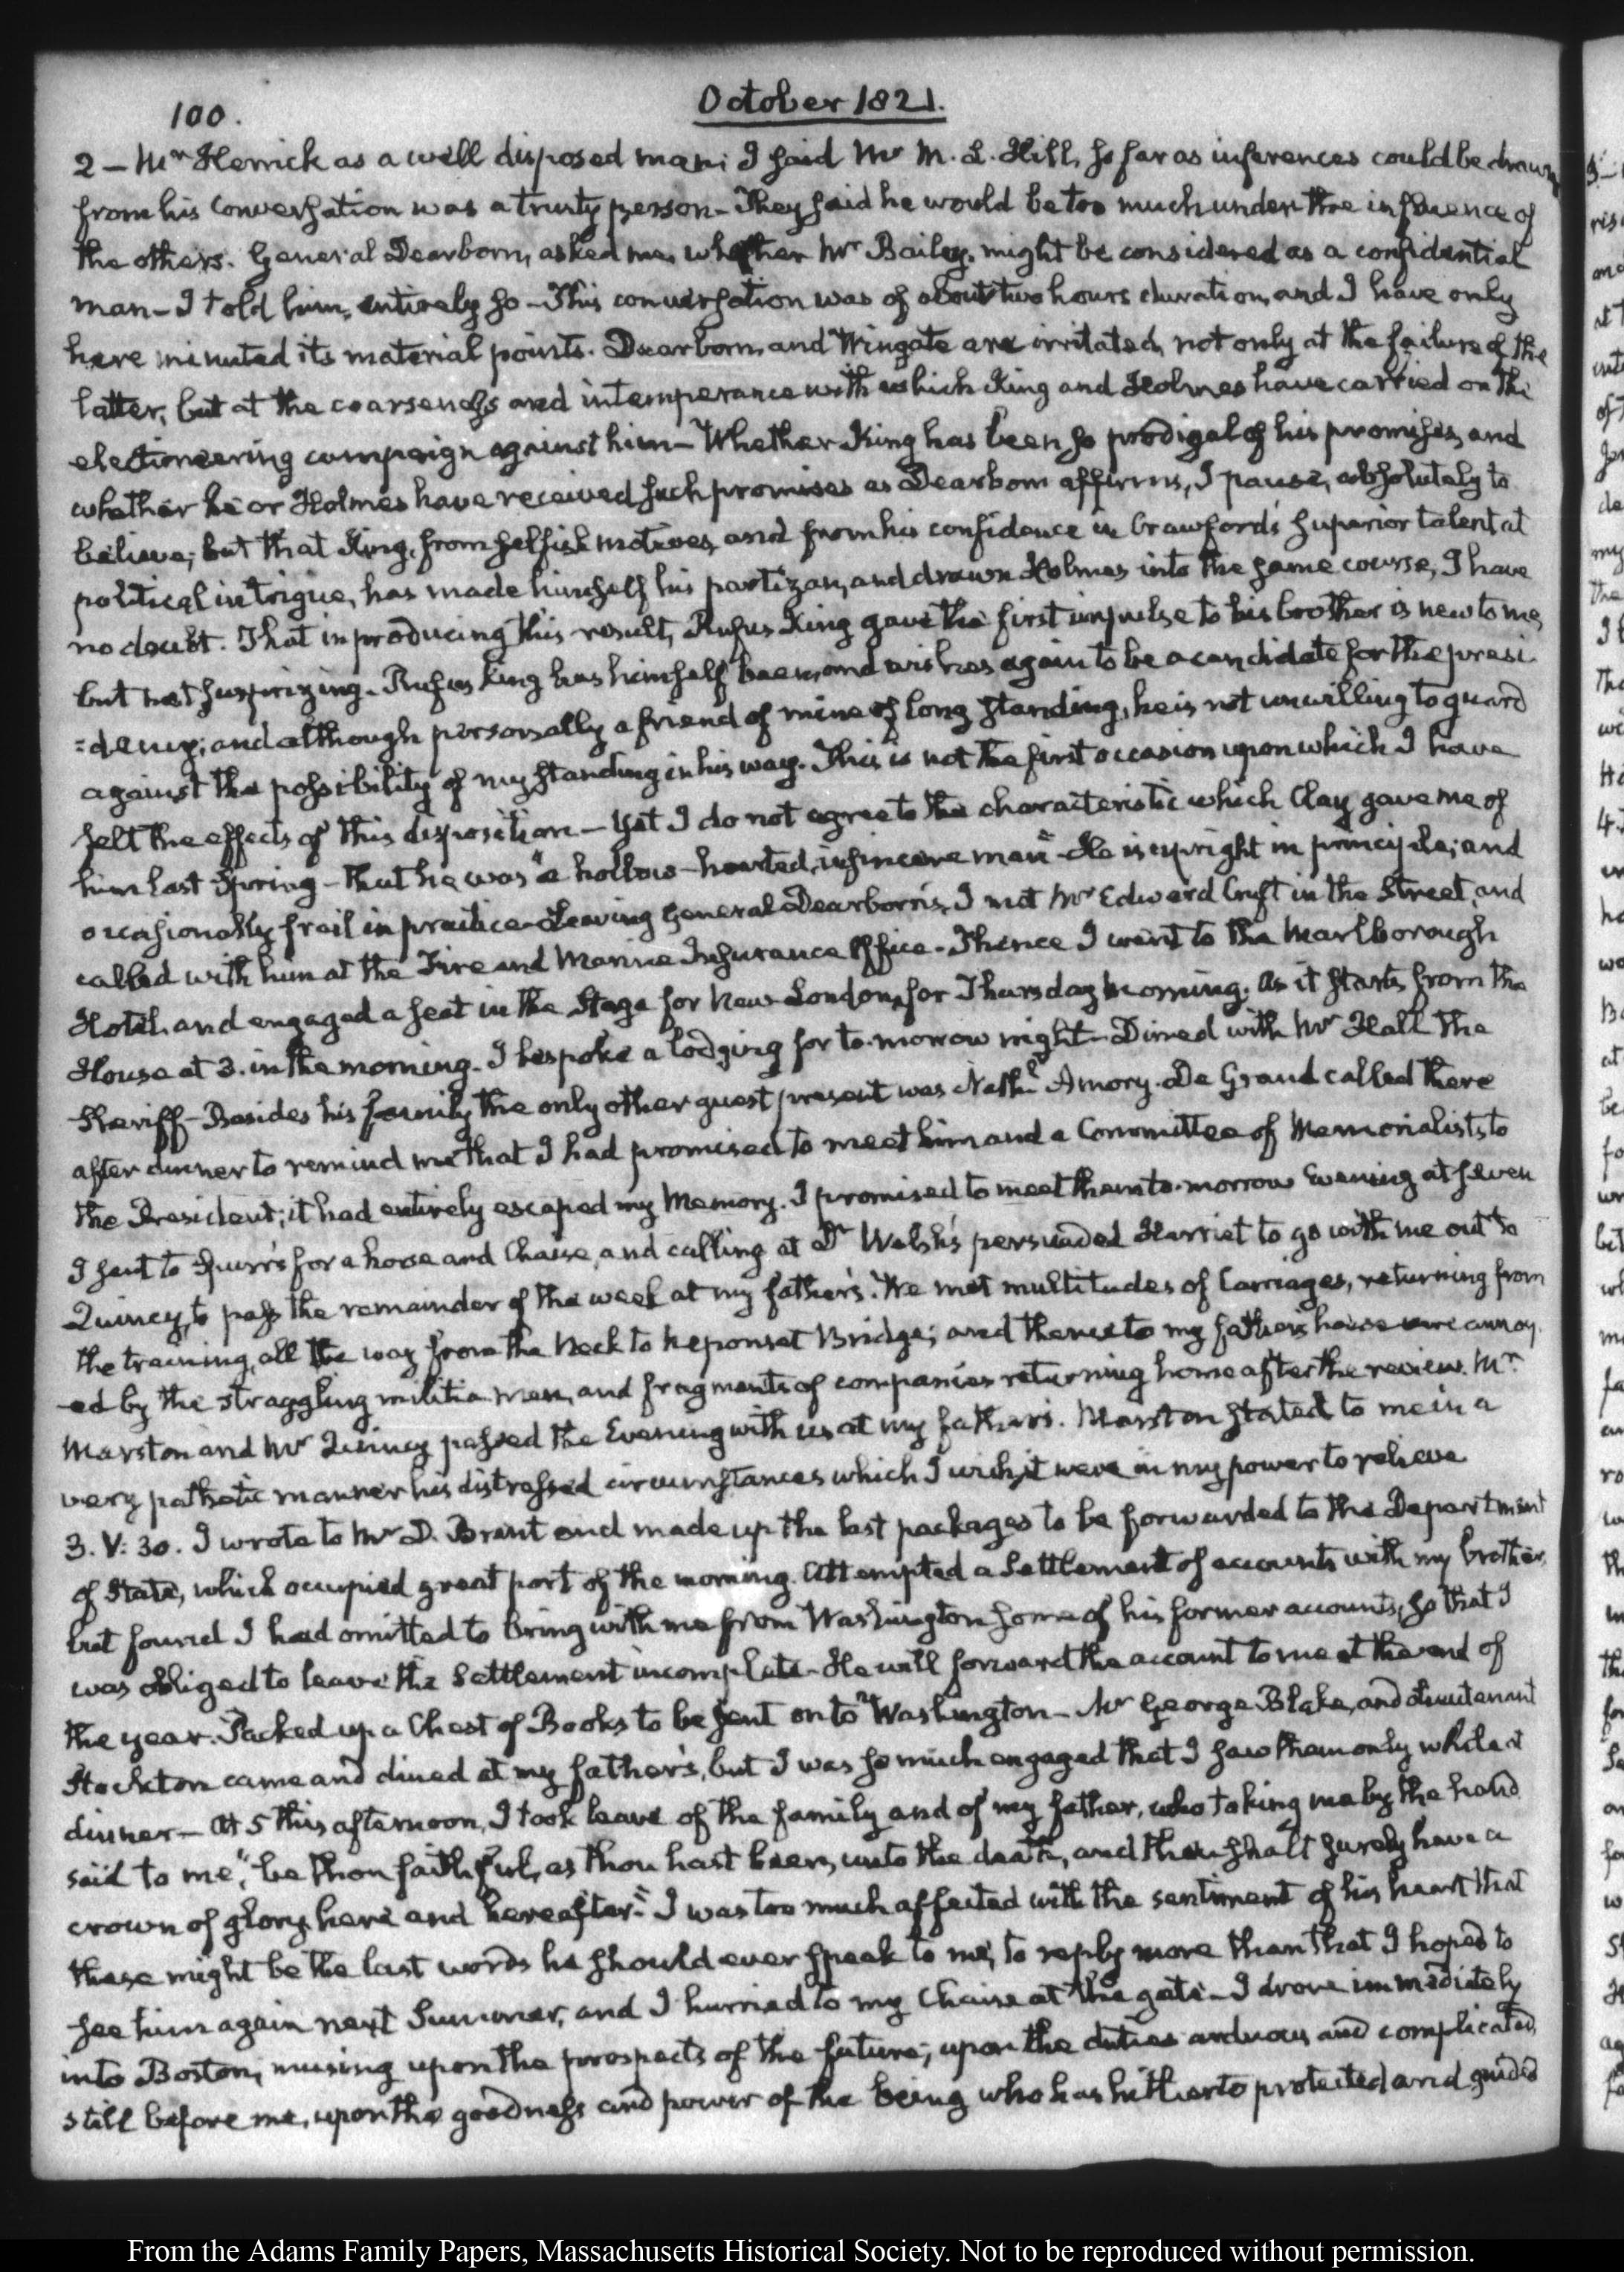 100.
October 1821.
2 – Mr Herrick as a well disposed man; I said Mr M. L. Hill, so far as inferences could be drawn
from his conversation was a trusty person – They said he would be too much under the influence of
the others. General Dearborn, asked me, whether Mr Bailey, might be considered as a confidential
man – I told him, entirely so – This conversation was of about two hours duration, and I have only
here minuted its material points. Dearborn, and Wingate are irritated, not only at the failure of the
latter, but at the coarseness and intemperance with which King and Holmes have carried on the
electioneering campaign against him – Whether King has been so prodigal of his promises, and
whether he or Holmes have received such promises as Dearborn affirms, I pause, absolutely to
believe; but that King, from selfish motives, and from his confidence in Crawford's superior talent at
political intrigue, has made himself his partizan, and drawn Holmes into the same course, I have
no doubt. That in producing this result, Rufus King gave the first impulse to his brother is new to me,
but not surprizing – Rufus King has himself been, and wishes again to be a candidate for the presi-
=dency; and although personally a friend of mine of long standing, he is not unwilling to guard
against the possibility of my standing in his way. This is not the first occasion upon which I have
felt the effects of this disposition – Yet I do not agree to the characteristic which Clay gave me of
him last Spring – that he was "a hollow-hearted, insincere man" – He is upright in principle; and
occasionally frail in practice – Leaving General Dearborn's, I met Mr Edward Cruft in the Street, and
called with him at the Fire and Marine Insurance Office – Thence I went to the Marlborough
Hotel, and engaged a seat in the Stage for New-London, for Thursday Morning. As it starts from the
House at 3. in the morning – I bespoke a lodging for to-morrow night – Dined with Mr Hall the
Sheriff – Besides his family the only other guest present was Nathl Amory. De Grand called there
after dinner to remind me that I had promised to meet him and a Committee of Memorialists to
the President; it had entirely escaped my Memory. I promised to meet them to-morrow Evening at seven
I sent to Spurr's for a horse and Chaise, and calling at Dr Welsh's persuaded Harriet to go with me out to
Quincy, to pass the remainder of the week at my father's. We met multitudes of Carriages, returning from
the training, all the way from the Neck to Neponset Bridge; and thence to my father's house were annoy-
-ed by the straggling militia men, and fragments of companies returning home after the review. Mr
Marston and Mr Quincy passed the Evening with us at my father's. Marston stated to me in a
very pathetic manner his distressed circumstances which I wish it were in my power to relieve
3. V: 30. I wrote to Mr D. Brent and made up the last packages to be forwarded to the Department
of State, which occupied great part of the morning. Attempted a Settlement of accounts with my brother,
but found I had omitted to bring with me from Washington some of his former accounts, so that I
was obliged to leave the Settlement incomplete – He will forward the account to me at the end of
the year. Packed up a Chest of Books to be sent on to Washington – Mr George Blake, and Lieutenant
Stockton came and dined at my father's, but I was so much engaged that I saw them only while at
dinner – At 5 this afternoon, I took leave of the family and of my father, who taking me by the hand
said to me, "be thou faithful, as thou hast been, unto the death, and thou shalt surely have a
crown of glory, here and hereafter." I was too much affected with the sentiment of his heart that
these might be the last words he should ever speak to me, to reply more than that I hoped to
see him again next Summer, and I hurried to my Chaise at the gate – I drove immediately
into Boston, musing upon the prospects of the future; upon the duties arduous and complicated
still before me, upon the goodness and power of the being who has hitherto protected and guided
From the Adams Family Papers, Massachusetts Historical Society. Not to be reproduced without permission.